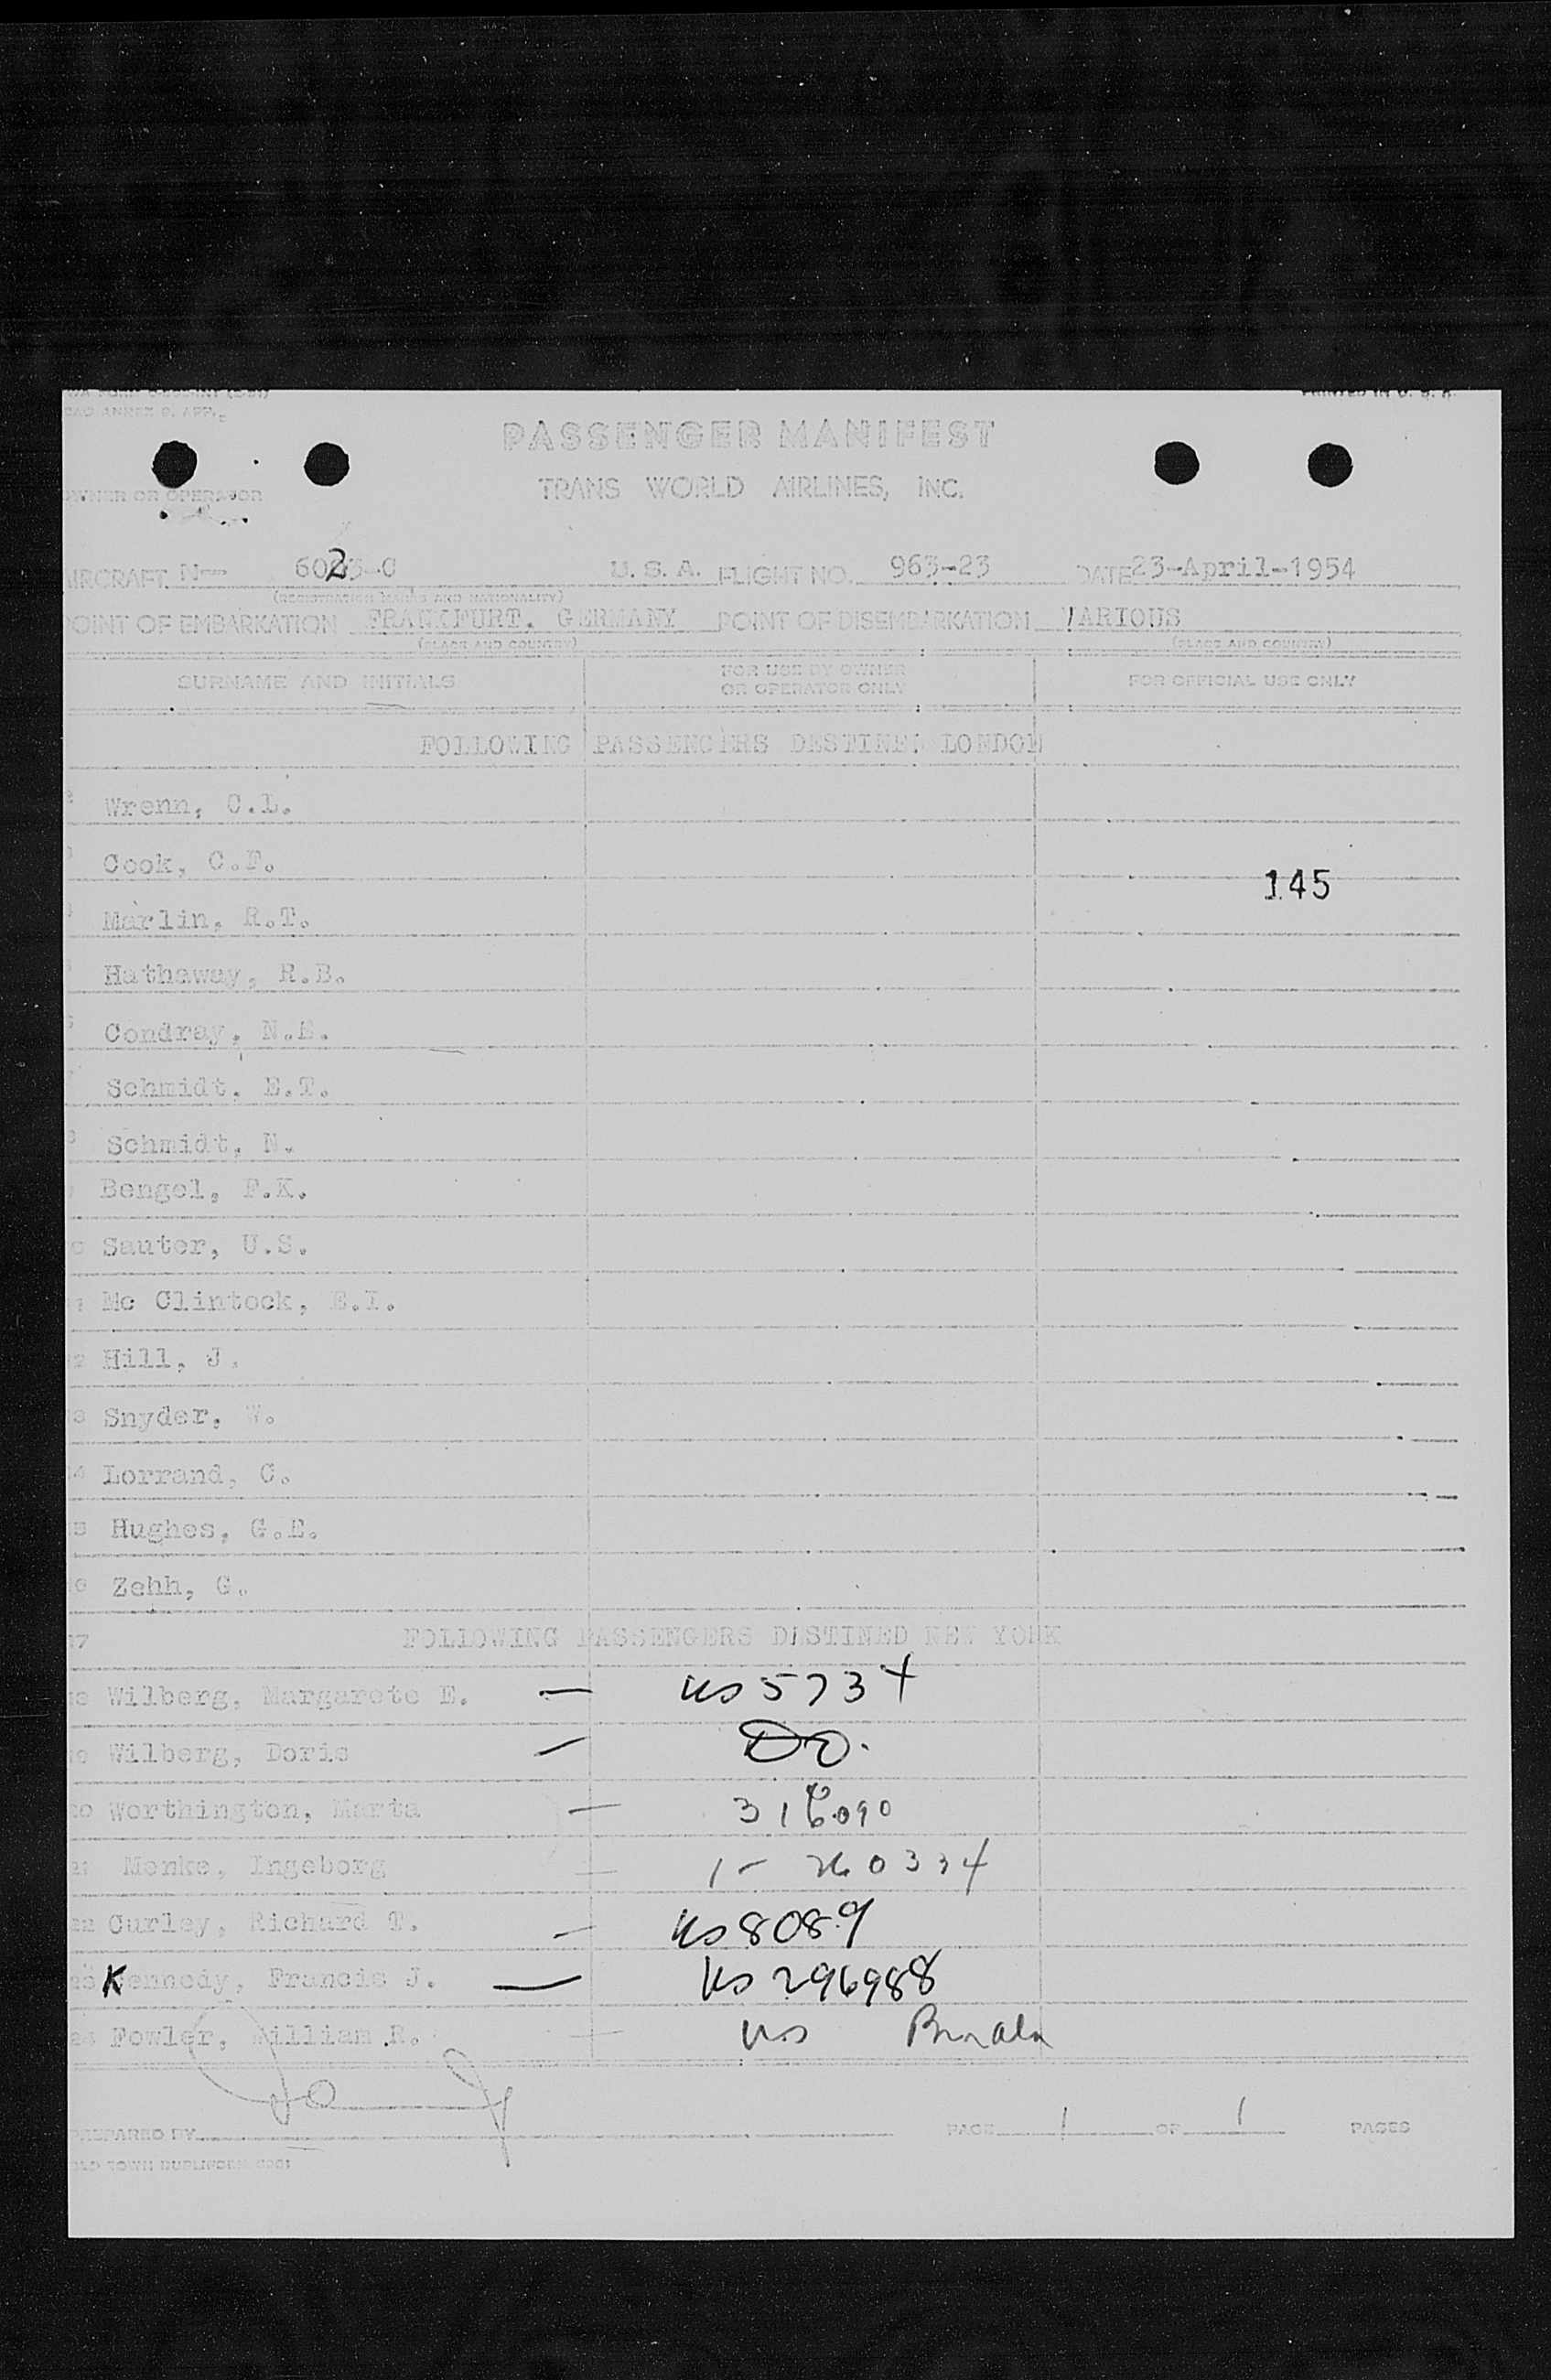 PRINTED IN U. S. A.
PASSENGER MANIFEST
OWNER OR OPERATOR
TRANS WORLD AIRLINES, INC.
AIRCRAFT N-- 6023-C U. S. A. FLIGHT NO. 963-23 DATE 23-April-1954
(REGISTRATION MARKS AND NATIONALITY)
POINT OF EMBARKATION FRANKFURT. GERMANY POINT OF DISEMBARKATION VARIOUS
(PLACE AND COUNTRY) (PLACE AND COUNTRY)
SURNAME AND INITIALS FOR USE BY OWNER OR OPERATOR ONLY FOR OFFICIAL USE ONLY
FOLLOWING PASSENGERS DESTINED LONDON
Wrenn, C.L.
Cook, C.F.
145
Marlin, R.T.
Hathaway, R.B.
Condray, N.E.
Schmidt, E.T.
Schmidt, N.
Bengel, F.K.
Sauter, U.S.
Mc Clintock, E.I.
12 Hill, J.
13 Snyder, W.
14 Lorrand, C.
15 Hughes, G.E.
16 Zehh, G.
17 FOLLOWING PASSENGERS DESTINED NEW YORK
18 Wilberg, Margarete E. — US 5734
19 Wilberg, Doris — DO.
20 Worthington, Marta — 316090
21 Menke, Ingeborg — 1- 260334
22 Curley, Richard T. — US 8089
23 Kennedy, Francis J. — US 296988
24 Fowler, William R. — US
PREPARED BY PAGE 1 OF 1 PAGES